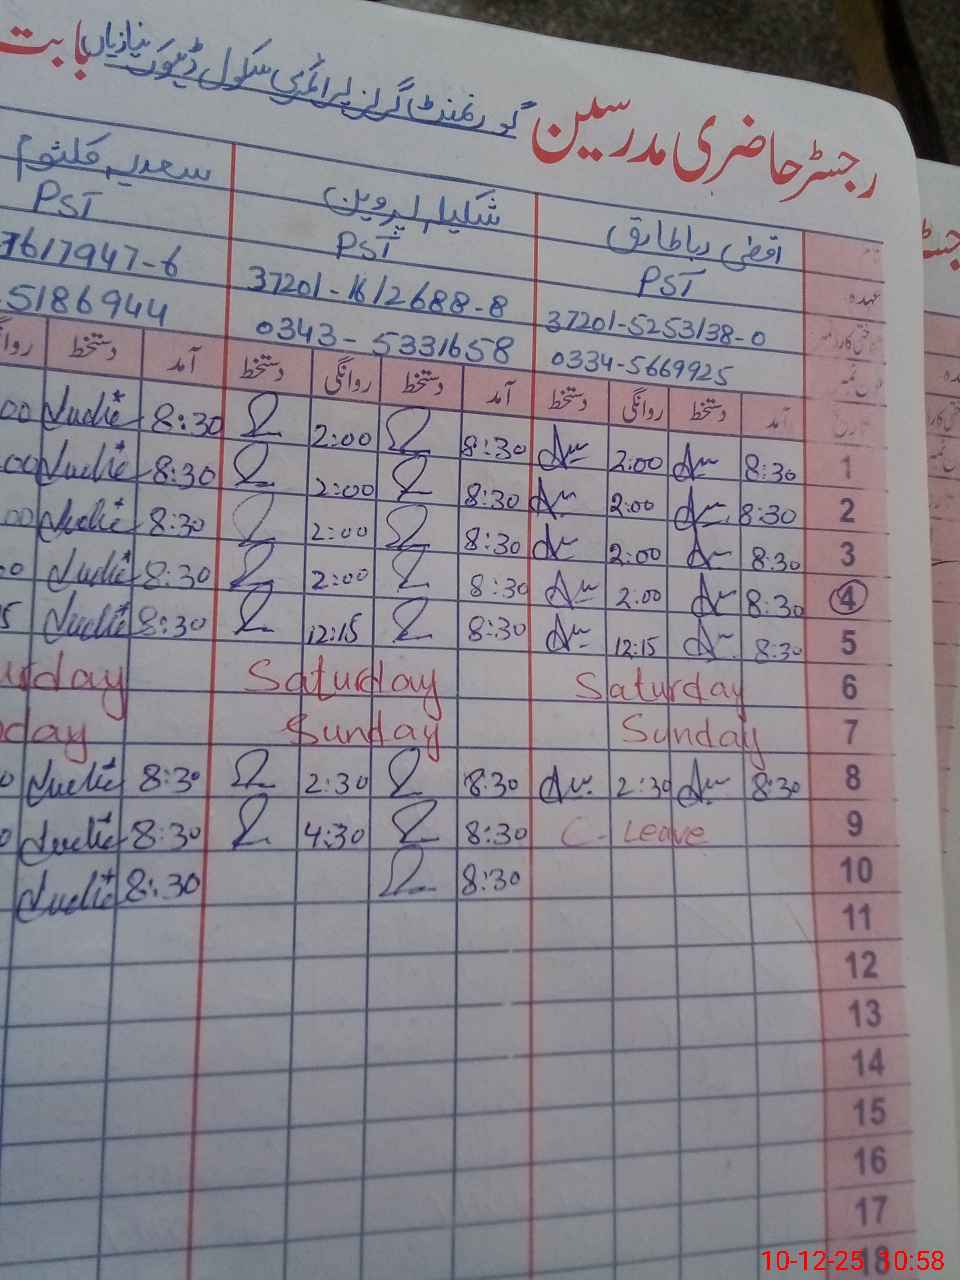 رجسٹر حاضری مدرسین گورنمنٹ گرلز پرائمری سکول ڈھوک نیازیاں بابت
شکیلہ پروین سعدیہ کلثوم
عہدہ PST PST PST
37201-5253138-0 37201-1612688-8 7617947-6
0334-5669925 0343-5331658 5186944
آمد دستخط روانگی دستخط آمد دستخط روانگی دستخط آمد دستخط
1 8:30 2:00 8:30 2:00 8:30 00
2 8:30 2:00 8:30 2:00 8:30 00
3 8:30 2:00 8:30 2:00 8:30 00
4 8:30 2:00 8:30 2:00 8:30 0
5 8:30 12:15 8:30 12:15 8:30 5
6 Saturday Saturday urday
7 Sunday Sunday day
8 8:30 2:30 8:30 2:30 8:30 0
9 C-Leave 8:30 4:30 8:30 0
10 8:30 8:30
11
12
13
14
15
16
17
18
10-12-25 10:58